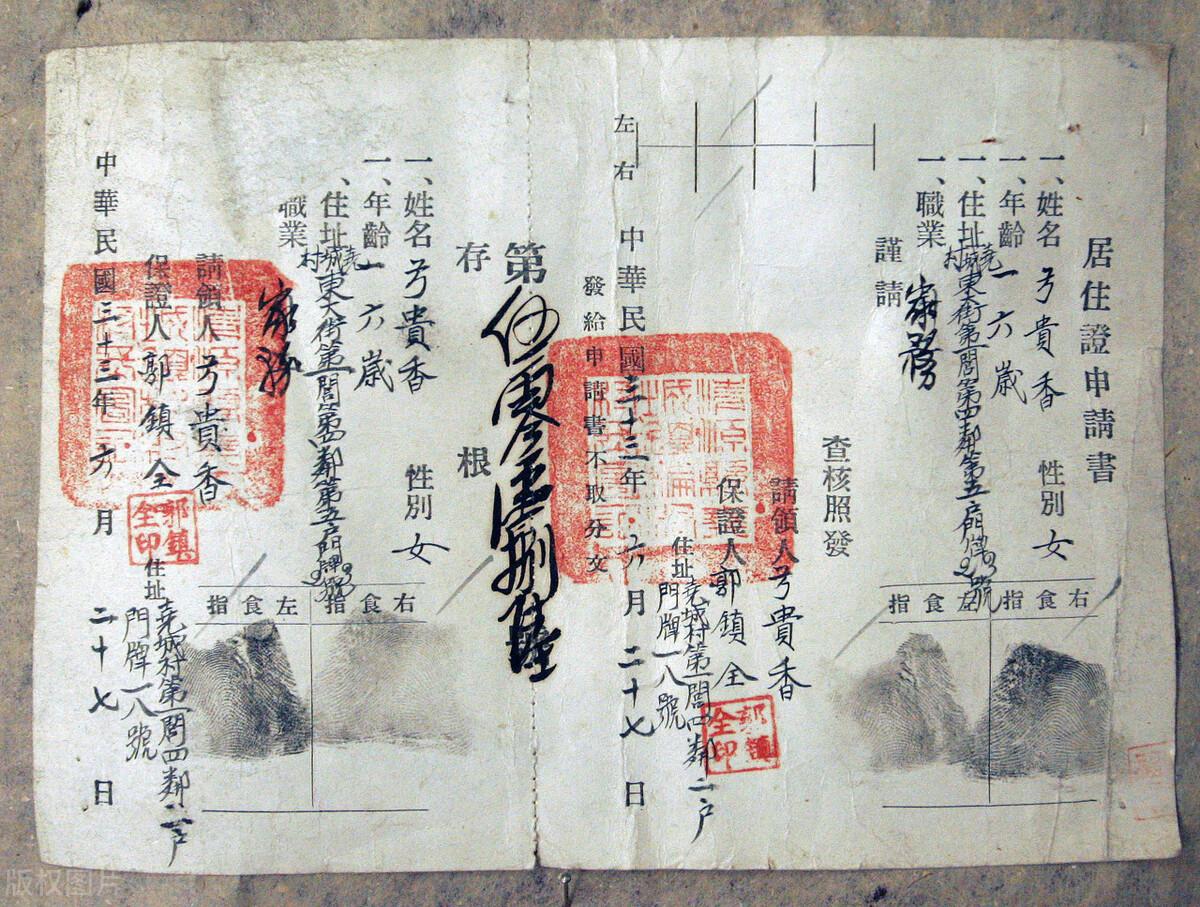 居住證申請書
一、姓名 弓貴香 性別 女
一、年齡 一六歲
一、住址 堯城村東街第一閭第四鄰第五戶門牌23號
一、職業 家務
謹請
查核照發
請領人 弓貴香
保證人 郭鎮全
郭鎮全印
住址 堯城村第一閭四鄰二戶
門牌一八號
中華民國三十三年六月二十七日
發給申請書不取分文
左右
右食指
左食指
第伍零陸捌陸
存根
一、姓名 弓貴香 性別 女
一、年齡 一六歲
一、住址 堯城村東大街第一閭第四鄰第五戶門牌23號
職業 家務
右食指
左食指
請領人 弓貴香
保證人 郭鎮全
郭鎮全印
住址 堯城村第一閭四鄰二戶
門牌一八號
中華民國三十三年六月二十七日
版权图片